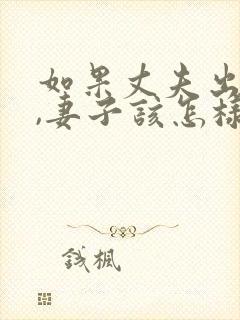 如果丈夫出
,妻子該怎樣
錢楓